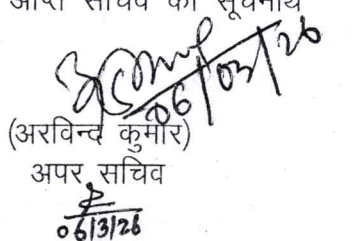 आप्त सचिव को सूचनार्थ
06/03/26
(अरविन्द कुमार)
अपर सचिव
06/3/26